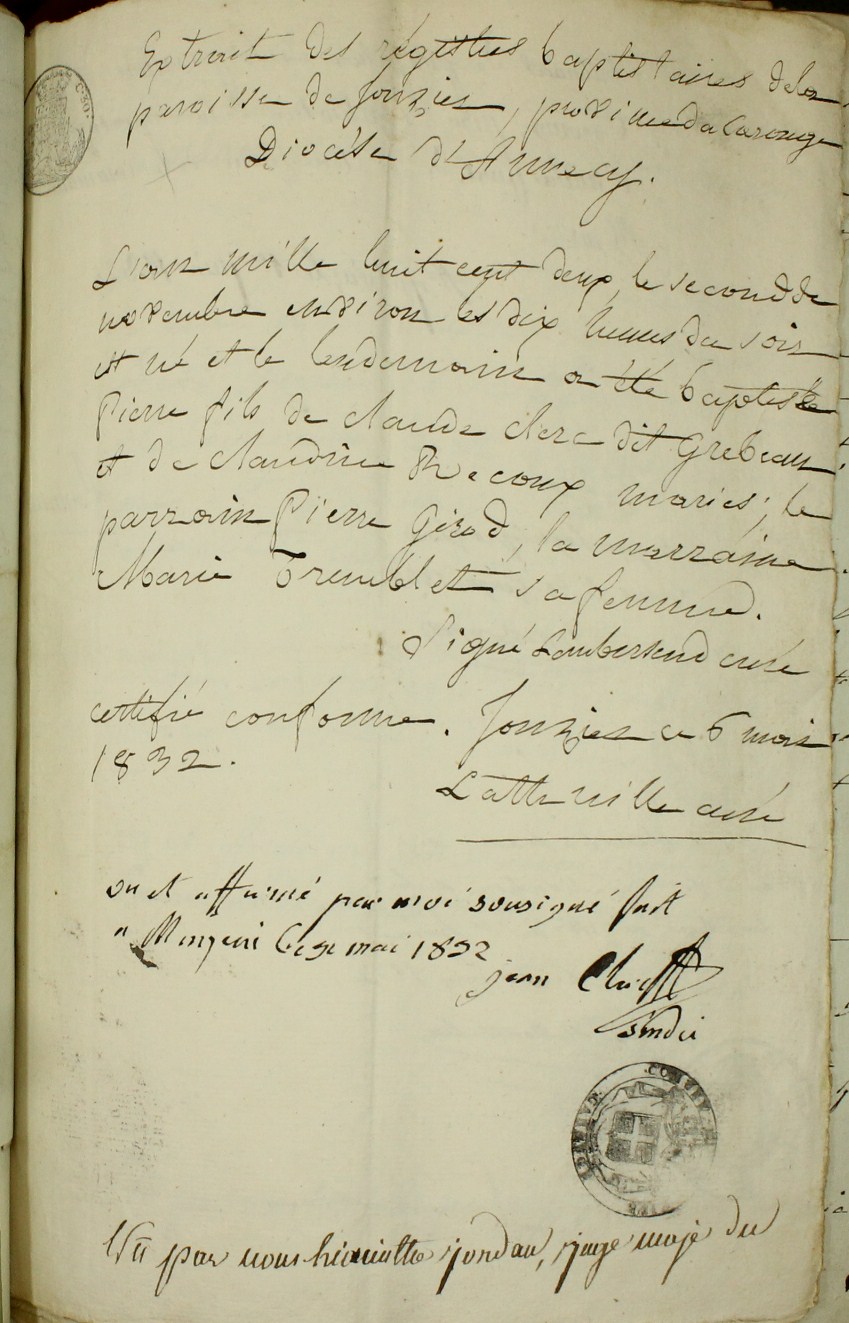 Extrait des régistres baptistaires dela
paroisse de Jonzier, province de Carouge
Diocèse d'Annecy.
L'an mille huit cent deux, le second de
novembre environ les dix heures du soir
est né et le lendemain a été baptisé
Pierre fils de claude clerc dit Grebeau
et de claudine Recoux mariés; le
parrain Pierre Girod, la marraine
Marie Tremblet sa femme.
Signé curé
certifié conforme. Jonzier ce 6 mai
1832.
Latteville curé
vu et affirmé par moi sousigné fait
a le mai 1832
jean
sindic
Vu par nous hiacinthe jordan, juge maje du